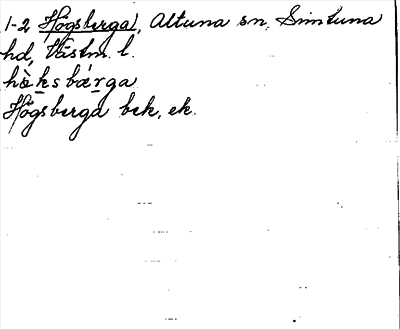 1-2 Högsberga, Altuna sn, Simtuna
hd, Västm. l.
hö̀ksbærga
Högsberga bek, ek.